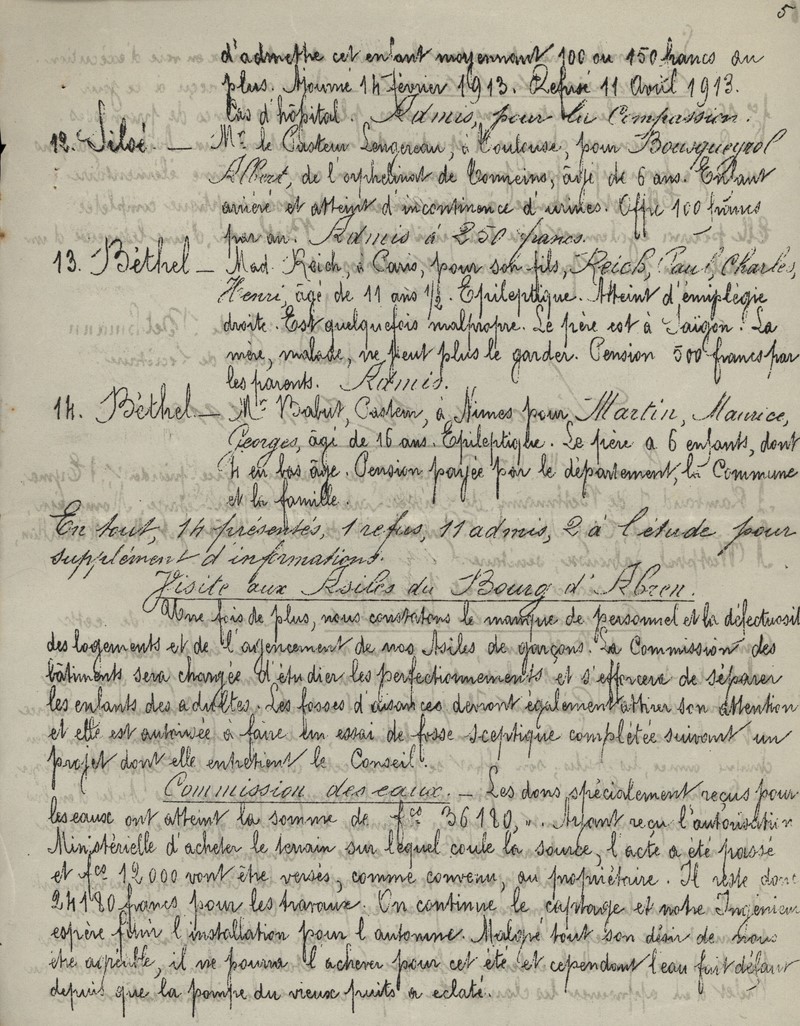 5
d'admettre cet enfant moyennant 100 ou 150 francs au
plus. Ajourné 14 février 1913. Refusé 11 Avril 1913.
Cas d'hôpital. Admis, pour La Compassion.
12. Siloé. — Mr. le Pasteur Lengereau, à Toulouse, pour Bousqueyrol
Albert, de l'orphelinat de Tonneins, âgé de 6 ans. Enfant
arriéré et atteint d'incontinence d'urines. Offre 100 francs
par an. Admis à 250 francs.
13. Béthel — Mad. Reich, à Paris, pour son fils, Reich, Paul, Charles,
Henri, âgé de 11 ans 1/2. Epileptique. Atteint d'émiplégie
droite. Est quelquefois malpropre. Le père est à Saïgon. La
mère, malade, ne peut plus le garder. Pension 500 francs par
les parents. Admis.
14. Béthel — Mr. Babut, Pasteur, à Nimes pour Martin, Maurice,
Georges, âgé de 16 ans. Epileptique. Le père a 6 enfants, dont
4 en bas âge. Pension payée par le département, la Commune
et la famille.
En tout, 14 présentés, 1 refus, 11 admis, 2 à l'étude pour
supplément d'informations.
Visite aux Asiles du Bourg d'Abren.
Une fois de plus, nous constatons le manque de personnel et la défectuosit
des logements et de l'agencement de nos Asiles de garçons. La Commission des
bâtiments sera chargée d'étudier les perfectionnements et s'efforcera de séparer
les enfants des adultes. Les fosses d'aisances devront également attirer son attention
et elle est autorisée à faire un essai de fosse sceptique complétée suivant un
projet dont elle entretient le Conseil.
Commission des eaux. — Les dons spécialement reçus pour
les eaux ont atteint la somme de fcs 36180,». Ayant reçu l'autorisation
Ministérielle d'acheter le terrain sur lequel coule la source, l'acte a été passé
et fcs 12000 vont être versés, comme convenu, au propriétaire. Il reste donc
24180 francs pour les travaux. On continue le captage et notre Ingénieur
espère finir l'installation pour l'automne. Malgré tout son désir de nous
être agréable, il ne pourra l'achever pour cet été et cependant l'eau fait défaut
depuis que la pompe du vieux puits a éclaté.